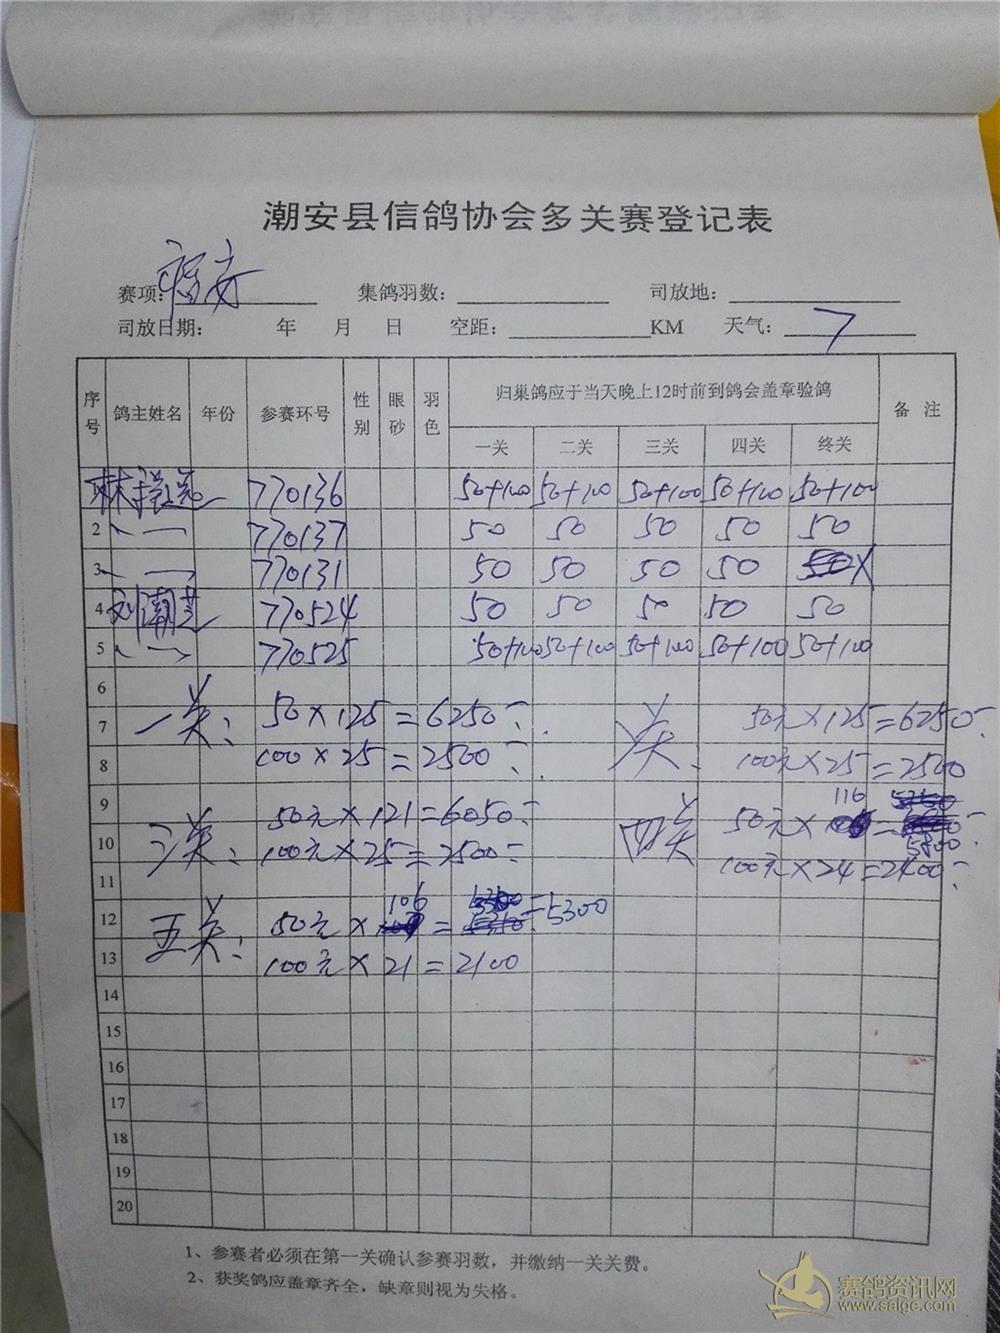 潮安县信鸽协会多关赛登记表
赛项: 福安 集鸽羽数: 司放地:
司放日期: 年 月 日 空距: KM 天气: 7
序号 鸽主姓名 年份 参赛环号 性别 眼砂 羽色 归巢鸽应于当天晚上12时前到鸽会盖章验鸽 备 注
一关 二关 三关 四关 终关
林 770136 50+100 50+100 50+100 50+100 50+100
2 770137 50 50 50 50 50
3 770131 50 50 50 50 50 X
4 刘潮芝 770524 50 50 50 50 50
5 770525 50+100 50+100 50+100 50+100 50+100
6
7 一关: 50×125=6250 二关: 50元×125=6250
8 100×25=2500 100元×25=2500
9 三关: 50元×121=6050 四关 50元×116=5800
10 100元×25=2500 100元×24=2400
11
12 五关: 50元×106=5300
13 100元×21=2100
14
15
16
17
18
19
20
1、参赛者必须在第一关确认参赛羽数，并缴纳一关关费。
2、获奖鸽应盖章齐全，缺章则视为失格。
赛鸽资讯网
www.saigc.com